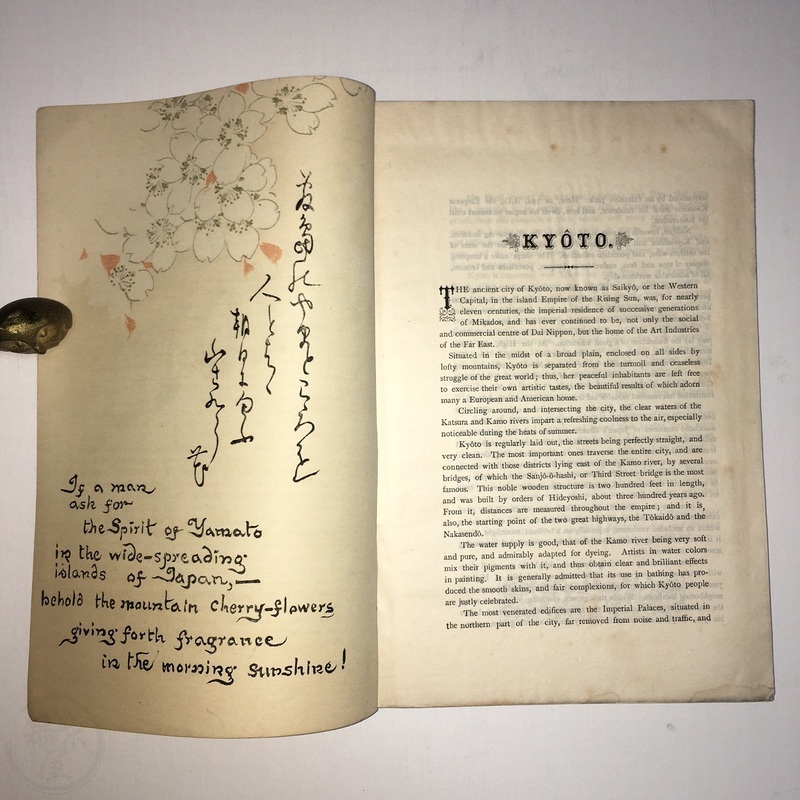 敷島のやまとこゝろを
人とはゝ
朝日に匂ふ
山さくら
花
If a man
ask for
the Spirit of Yamato
in the wide-spreading
islands of Japan,—
behold the mountain cherry-flowers
giving forth fragrance
in the morning sunshine!
KYÔTO.
THE ancient city of Kyôto, now known as Saikyô, or the Western
Capital, in the island Empire of the Rising Sun, was, for nearly
eleven centuries, the imperial residence of successive generations
of Mikados, and has ever continued to be, not only the social
and commercial centre of Dai Nippon, but the home of the Art Industries
of the Far East.
Situated in the midst of a broad plain, enclosed on all sides by
lofty mountains, Kyôto is separated from the turmoil and ceaseless
struggle of the great world; thus, her peaceful inhabitants are left free
to exercise their own artistic tastes, the beautiful results of which adorn
many a European and American home.
Circling around, and intersecting the city, the clear waters of the
Katsura and Kamo rivers impart a refreshing coolness to the air, especially
noticeable during the heats of summer.
Kyôto is regularly laid out, the streets being perfectly straight, and
very clean. The most important ones traverse the entire city, and are
connected with those districts lying east of the Kamo river, by several
bridges, of which the Sanjô-ô-hashi, or Third Street bridge is the most
famous. This noble wooden structure is two hundred feet in length,
and was built by orders of Hideyoshi, about three hundred years ago.
From it, distances are measured throughout the empire; and it is,
also, the starting point of the two great highways, the Tôkaidô and the
Nakasendô.
The water supply is good, that of the Kamo river being very soft
and pure, and admirably adapted for dyeing. Artists in water colors
mix their pigments with it, and thus obtain clear and brilliant effects
in painting. It is generally admitted that its use in bathing has pro-
duced the smooth skins, and fair complexions, for which Kyôto people
are justly celebrated.
The most venerated edifices are the Imperial Palaces, situated in
the northern part of the city, far removed from noise and traffic, and